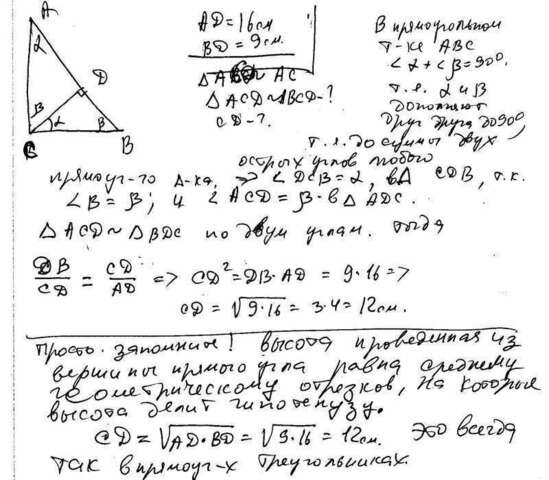 A
α
D
β
α
β
C
B
AD = 16см
BD = 9см.
ΔACD~ΔBCD-?
CD-?
В прямоугольном
т-ке ABC
∠α+∠β=90°.
т.е. α и β
дополняют
друг друга до 90°,
т.е. до суммы двух
острых углов любого
прямоуг-го Δ-ка, => ∠DCB=α, в Δ CDB, т.к.
∠B = β; и ∠ACD = β. в Δ ADC.
ΔACD ~ ΔBDC по двум углам. тогда
DB/CD = CD/AD => CD² = DB·AD = 9·16 =>
CD = √9·16 = 3·4 = 12см.
Просто запомните! высота проведенная из
вершины прямого угла равна среднему
геометрическому отрезков, на которые
высота делит гипотенузу.
CD = √AD·BD = √9·16 = 12см. это всегда
так в прямоуг-х треугольниках.